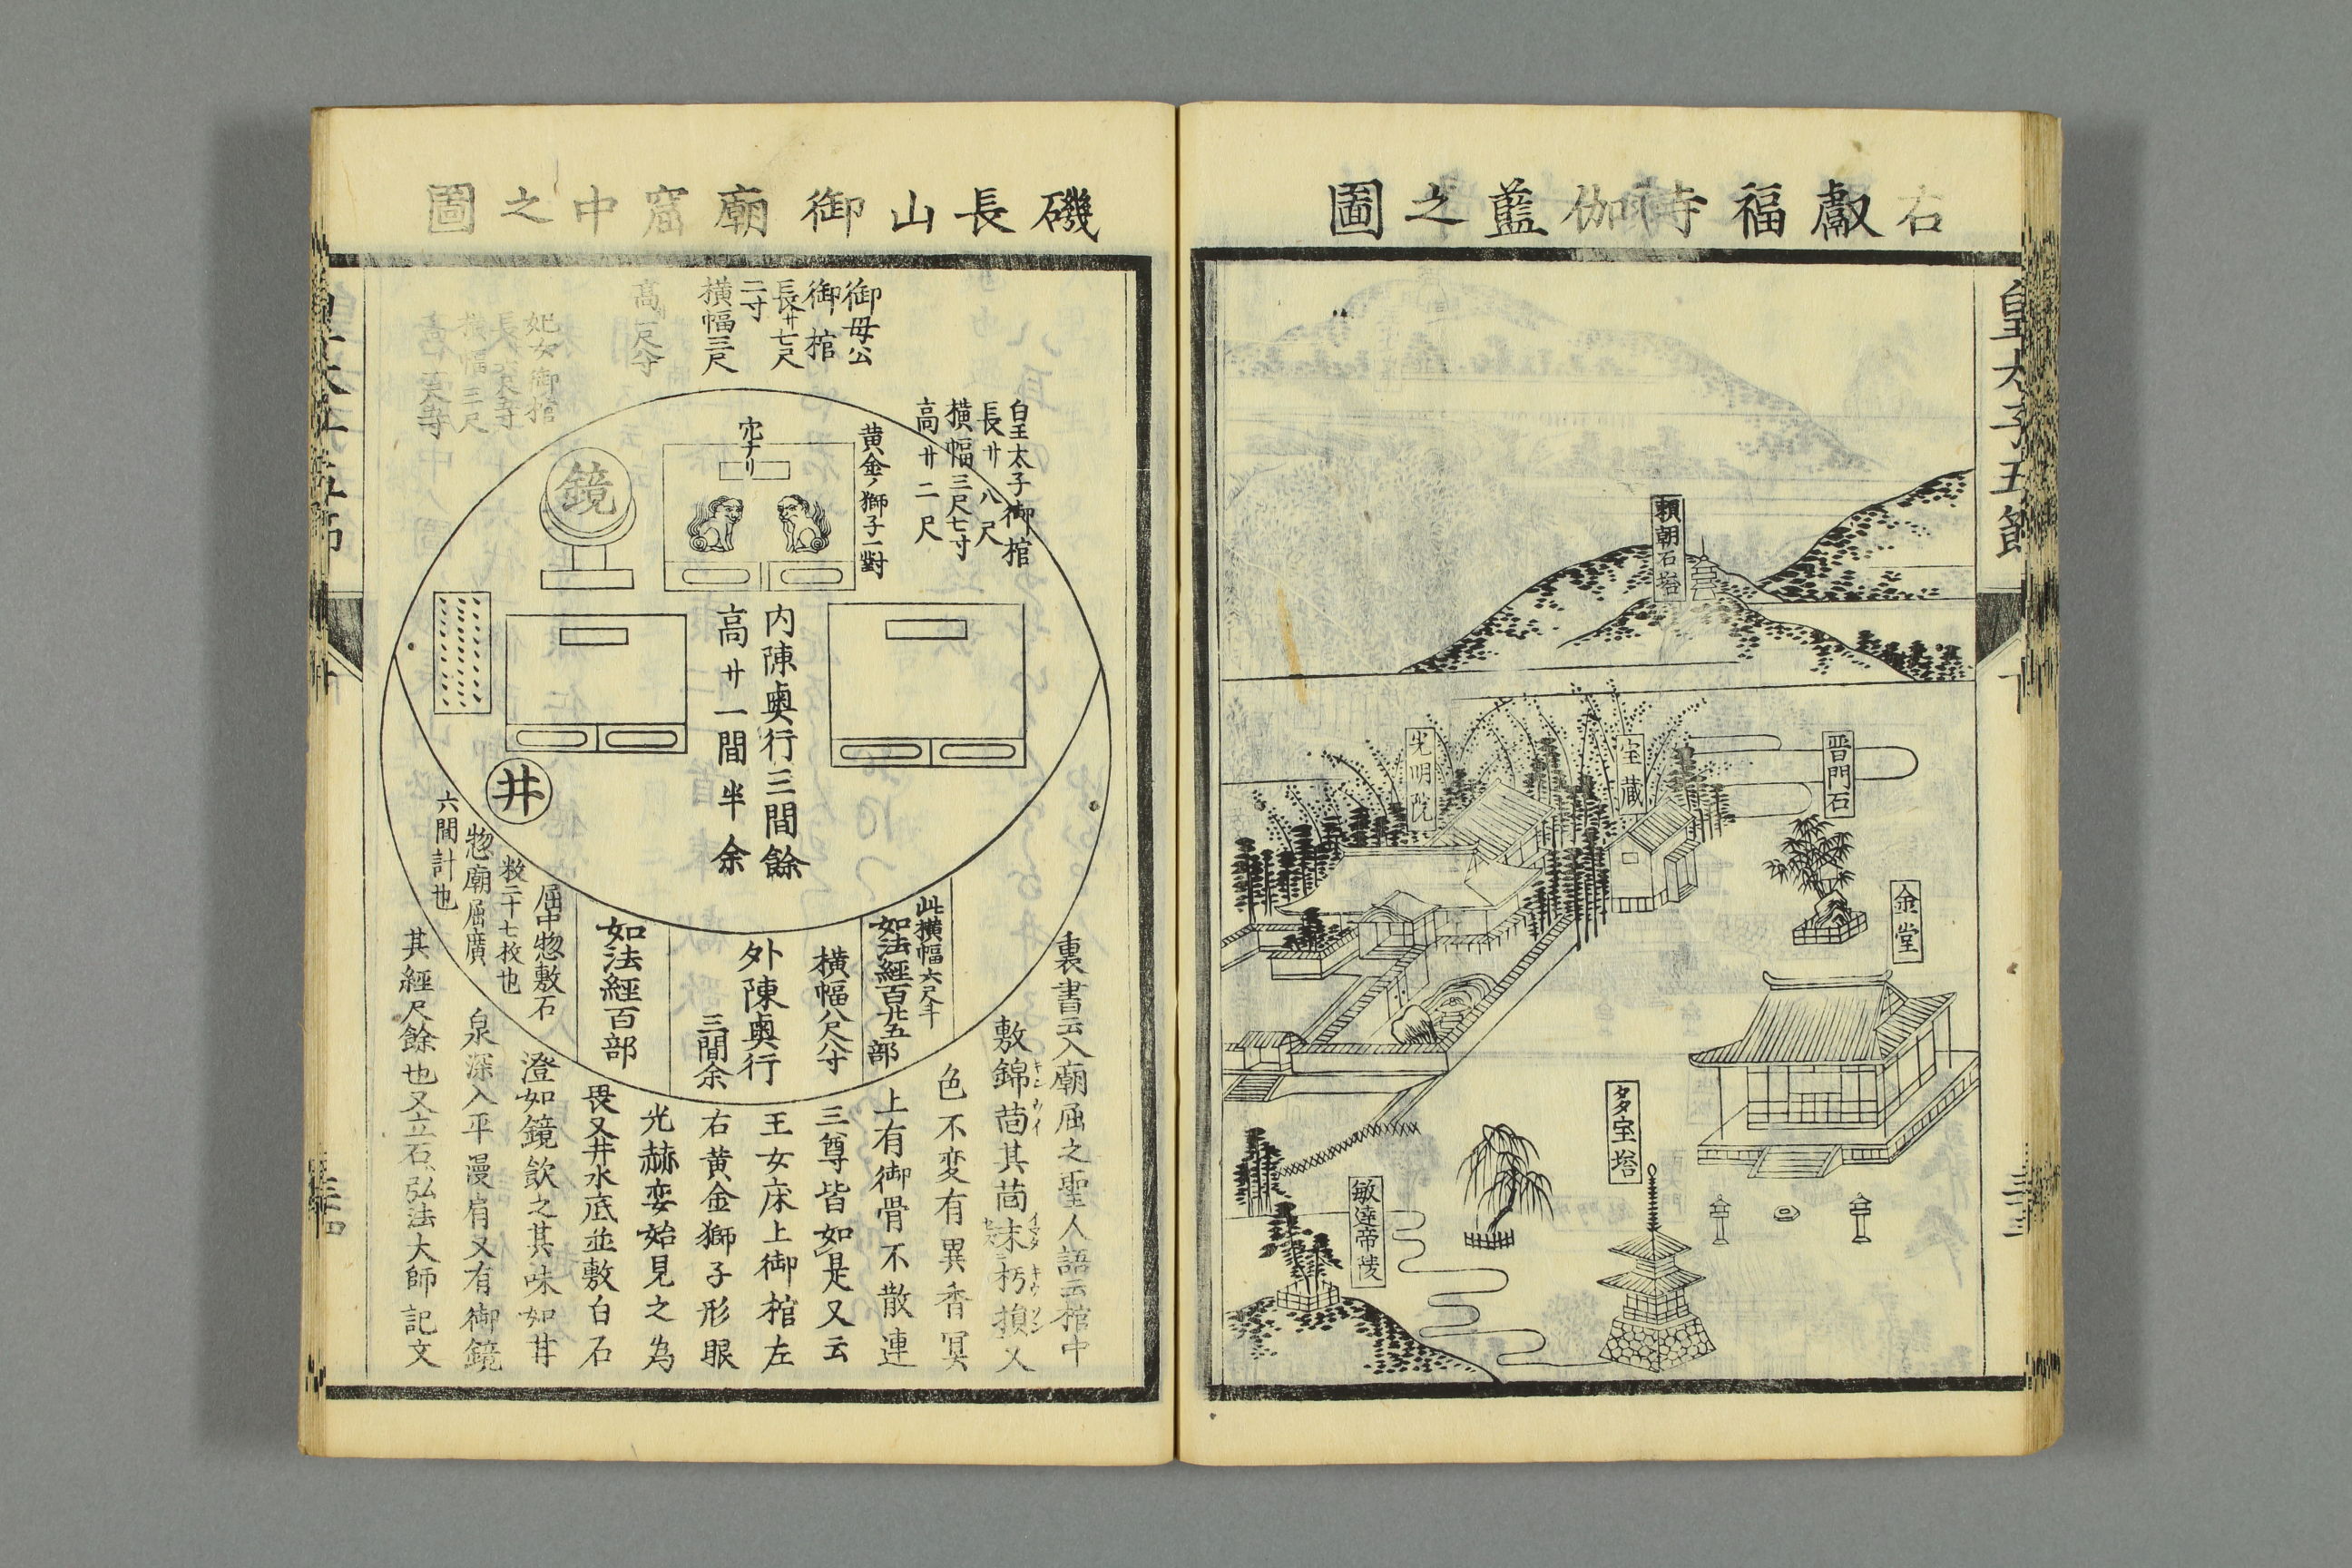 右叡福寺伽藍之圖
皇太子五節
頼朝石塔
晋門石
宝蔵
光明院
金堂
多宝塔
敏達帝陵
三十三
磯長山御廟窟中之圖
御母公
御棺
長サ七尺
二寸
横幅三尺
皇太子御棺
長サ八尺
横幅三尺七寸
高サ二尺
黄金ノ獅子一對
穴ナリ
鏡
妃女御棺
横幅三尺
内陳奥行三間餘
高サ一間半余
井
此横幅六尺半
如法經百廿五部
横幅八尺八寸
外陳奥行
三間余
如法經百部
屈中惣敷石
数二十七枚也
惣廟屈廣
六間計也
裏書云入廟屈之聖人語云棺中
敷錦茵其茵末朽損又
色不変有異香冥
上有御骨不散連
三尊皆如是又云
王女床上御棺左
右黄金獅子形眼
光赫奕始見之為
畏又井水底並敷白石
澄如鏡飲之其味如甘
泉深入平漫肩又有御鏡
其經尺餘也又立石弘法大師記文